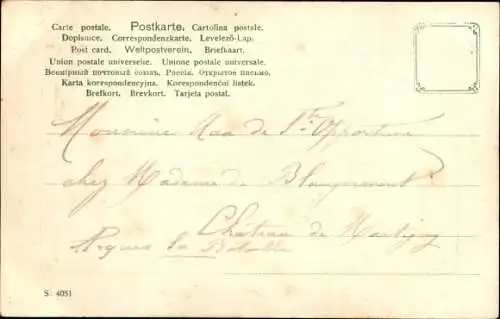 Carte postale. Postkarte. Cartolina postale.
Dopisnice. Correspondenzkarte. Levelező-Lap.
Post card. Weltpostverein. Briefkaart.
Union postale universelse. Unione postale universale.
Всемірный почтовый союзъ. Россія. Открытое письмо.
Karta korespondencyjna. Korespondenčni listek.
Brefkort. Brevkort. Tarjeta postal.
Monsieur de Ste Opportune
chez Madame de
Château de Martigny
Arques la Bataille
S. 4051